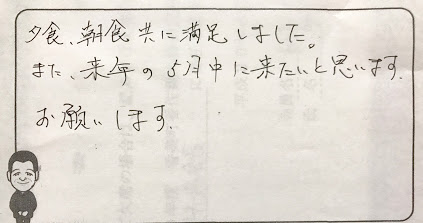 夕食、朝食共に満足しました。
また、来年の5月中に来たいと思います.
お願いします.